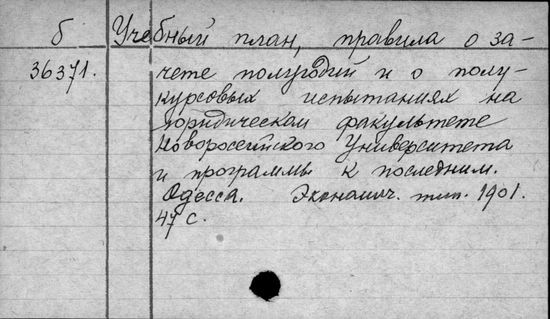 б Учебный план, правила о за-
36371. чете полугодий и о полу-
курсовых испытаниях на
юридическом факультете
Новороссийского Университета
и программы к последним.
Одесса. Экономич. тип. 1901.
47 с.